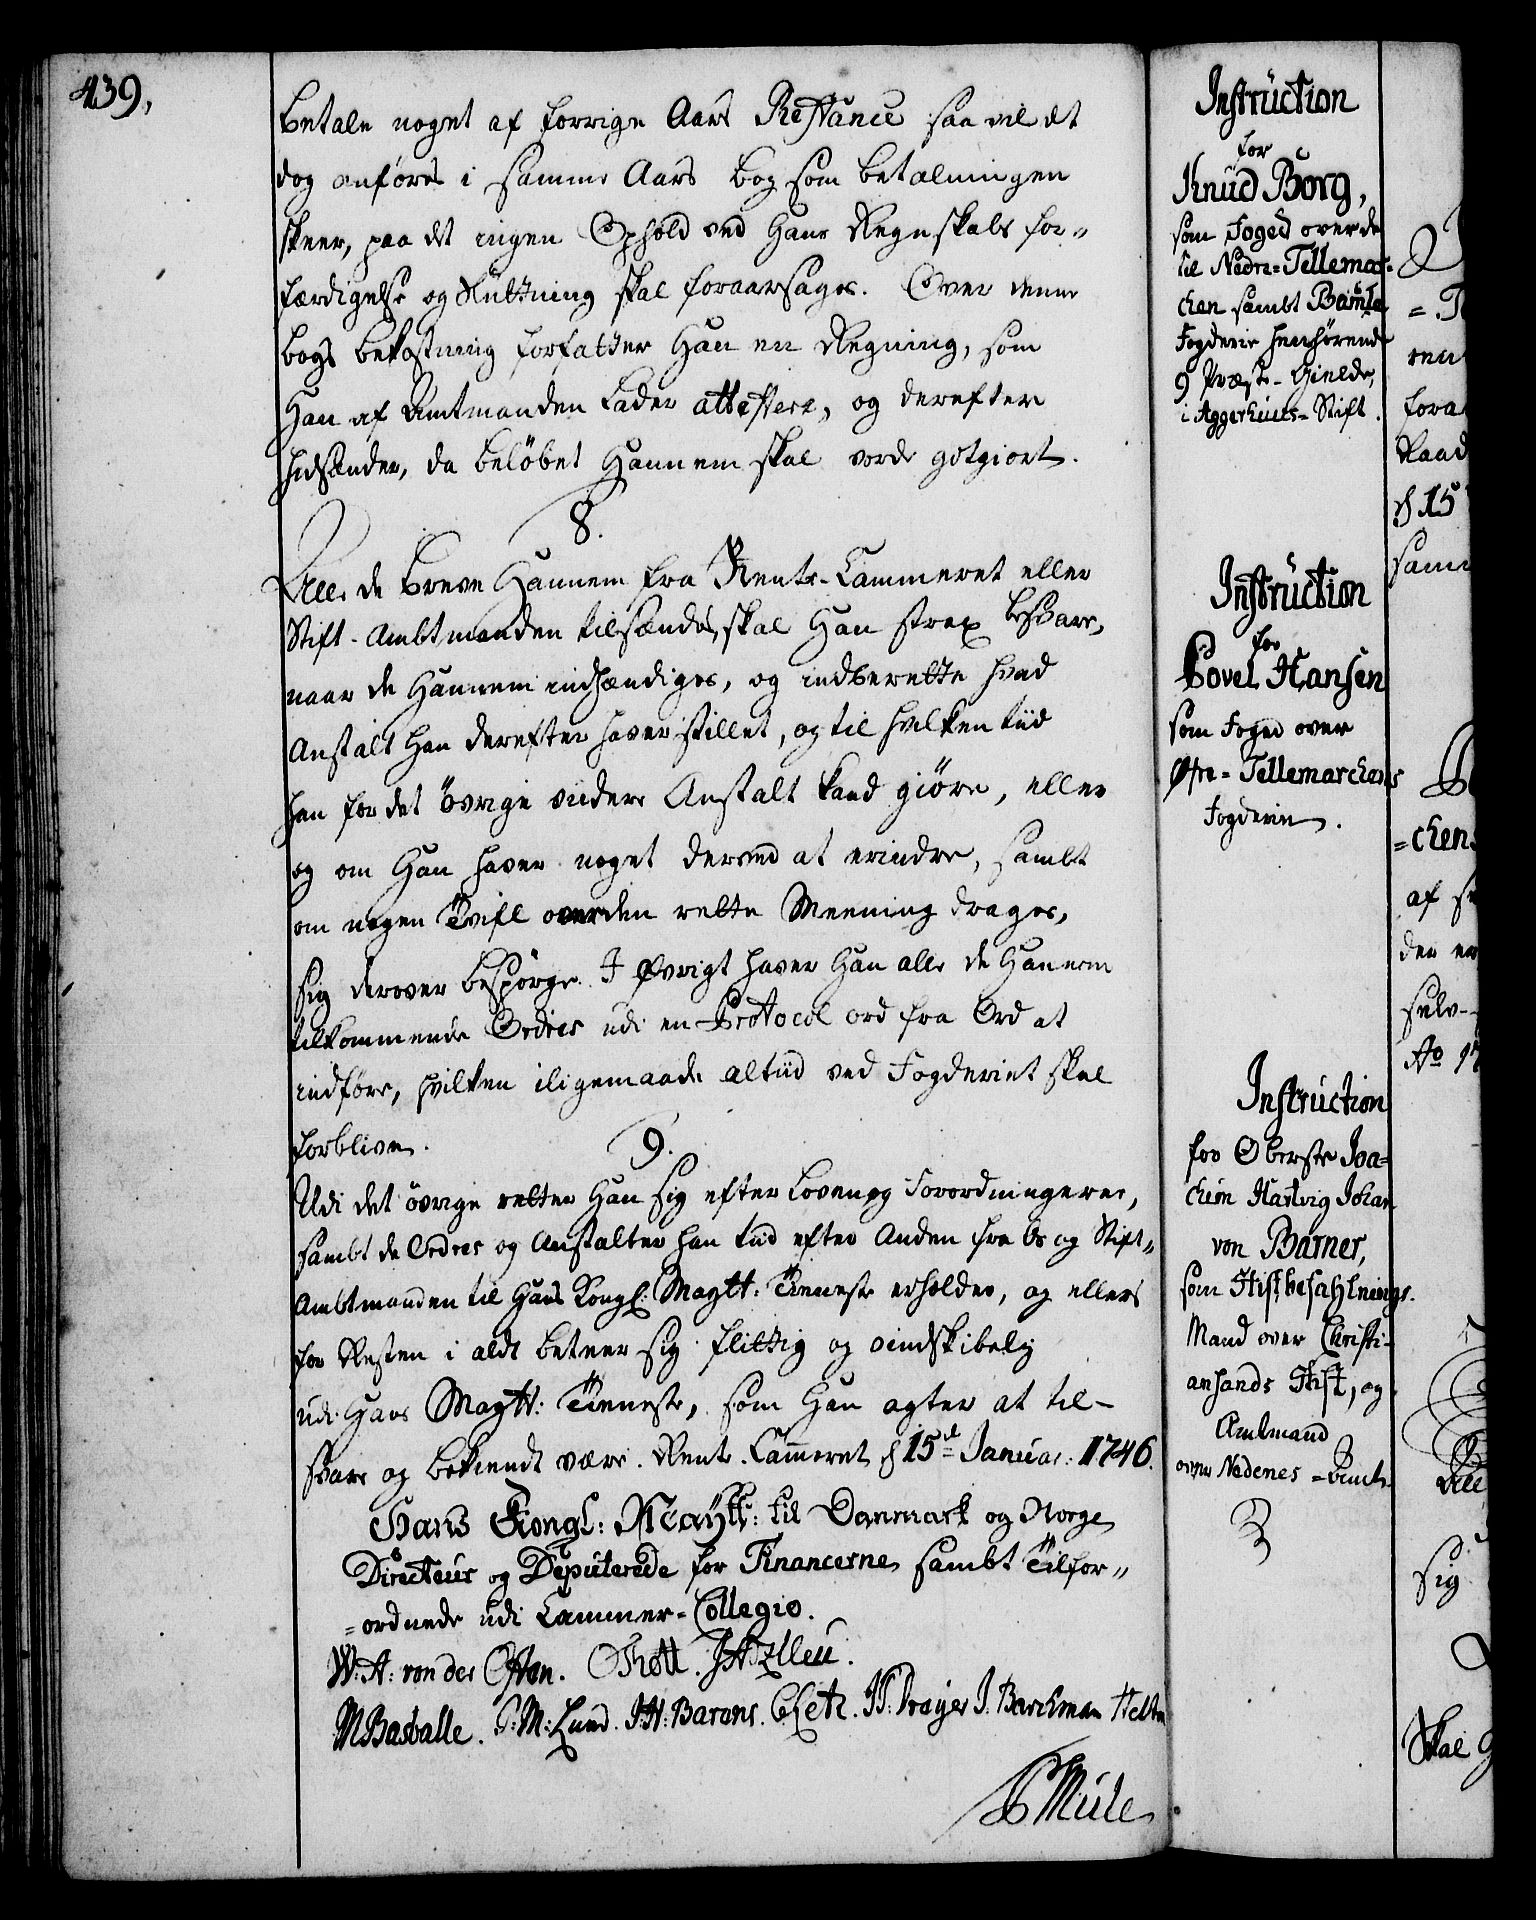 439,
betale noget af forrige Aars Restance saa vil det
dog anføres i samme Aars bog som betalningen
skeer, paa det ingen Ophold ved Hans Regnskabs for„
færdigelse og Slüttning skal foraarsages. Over denne
bogs bekostning forfatter Han en Regning, som
Han af Amtmanden lader attestere, og derefter
hidsender, da beløbet Hannem skal vorde gotgiort.
8.
Alle de breve Hannem fra Rente-Cammeret eller
Stift-Ambtmanden tilsændes, skal Han strax besvare,
naar de Hannem indhændiges, og indberette hvad
Anstalt han derefter haver stillet, og til hvilken tiid
han for det övrige viidere Anstalt kand giöre, eller
og om Han haver noget derved at erindre, sambt
om nogen Tvifl over den rette Meening drages,
sig derover bespörge. I Øvrigt haver Han alle de Hannem
tilkommende Ordres udi en Protocol ord fra Ord at
indföre, hvilken iligemaade altiid ved Fogderiet skal
forblive.
9.
Udi det övrige retter Han sig efter Loven og Forordningerne,
sambt de Ordres og Anstalter han tiid efter Anden fra Os og Stift„
Ambtmanden til Hans Kongl: Maytt: Tieneste erholder, og ellers
for Resten i aldt beteer sig flittig og vindskibelig
udi Hans Maytt: Tieneste, som Han agter at til-
svare og bekiendt være. Rente-Cammeret d 15de Januar: 1746.
Hans Kongl: Maÿtt: til Danmark og Norge
Directeur og Deputerede for Financerne sambt Tilfor„
=ordnede udi Cammer-Collegio.
W: A: von der Osten. OThott.
MBasballe. P: M: Lund. J: H: Barens. Holten
Mule
Instrüction
for
Knud Borg,
som Foged over de
til Nedre=Tellemar=
chen sambt Bamle
Fogderie henhörende
9 Præste-Gielde,
i Aggerhuus-Stift.
Instrüction
for
Povel Hansen
som Foged over
Øfre=Tellemarchens
Fogderie.
Instrüction
for Oberste Joa=
chim Hartvig Johan
von Barner,
som Stiftbefahlnings-
Mand over Christi-
ansands Stift, og
Amtmand
over Nedenes-Amt.
foran
Raad
d 15
sam
=chens
af
den
selv-
Ao 17
Alle
Sig
Skal